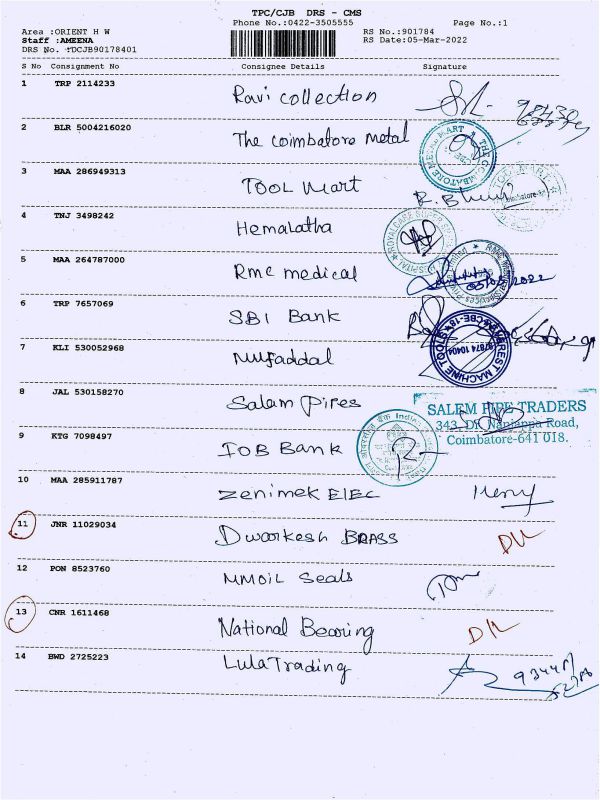 TPC/CJB DRS - CMS
Phone No.:0422-3505555 Page No.:1
Area :ORIENT H W RS No.:901784
Staff :AMEENA RS Date:05-Mar-2022
DRS No. :DCJB90178401
S No Consignment No Consignee Details Signature
1 TRP 2114233 Ravi collection
2 BLR 5004216020 The coimbatore metal
3 MAA 286949313 TOOL Mart
4 TNJ 3498242 Hemalatha
5 MAA 264787000 Rmc medical
6 TRP 7657069 SBI Bank
7 KLI 530052968 Mufaddal
8 JAL 530158270 Salam Pipes
SALEM PIPE TRADERS
343, Dr. Nanjappa Road,
Coimbatore-641 018.
9 KTG 7098497 IOB Bank
10 MAA 285911787 Zenimek ELEC
11 JNR 11029034 Dwarkesh BRASS
12 PON 8523760 MMOIL Seals
13 CNR 1611468 National Bearing
14 BWD 2725223 Lula Trading